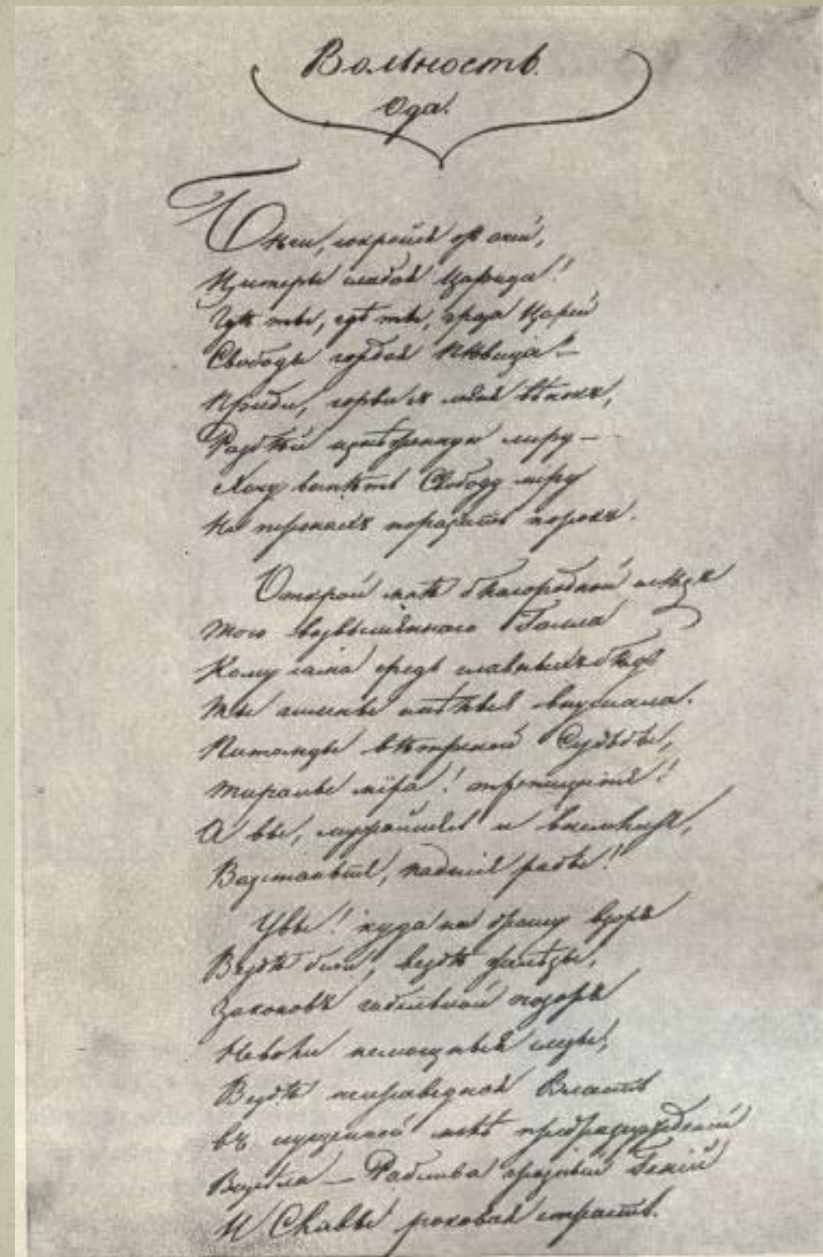 Вольность.
Ода.
Бѣги, сокройся отъ очей,
Цитеры слабая Царица!
Гдѣ ты, гдѣ ты, гроза Царей
Свободы гордая Пѣвица? —
Приди, сорви съ меня вѣнокъ,
Разбей изнѣженную лиру —
Хочу воспѣть Свободу миру
На тронахъ поразить порокъ.
Открой мнѣ благородной слѣдъ
Того возвышеннаго Галла
Кому сама средь славныхъ бѣдъ
Ты гимны смѣлыя внушала.
Питомцы вѣтреной Судьбы,
Тираны міра! трепещите!
А вы, мужайтесь и внемлите,
Возстаньте, падшіе рабы!
Увы! куда ни брошу взоръ
Вездѣ бичи, вездѣ желѣзы,
Законовъ гибельной позоръ
Неволи немощныя слезы;
Вездѣ неправедная Власть
Въ сгущенной мглѣ предразсужденій
Возсѣла — Рабства грозный Геній
И Славы роковая страсть.